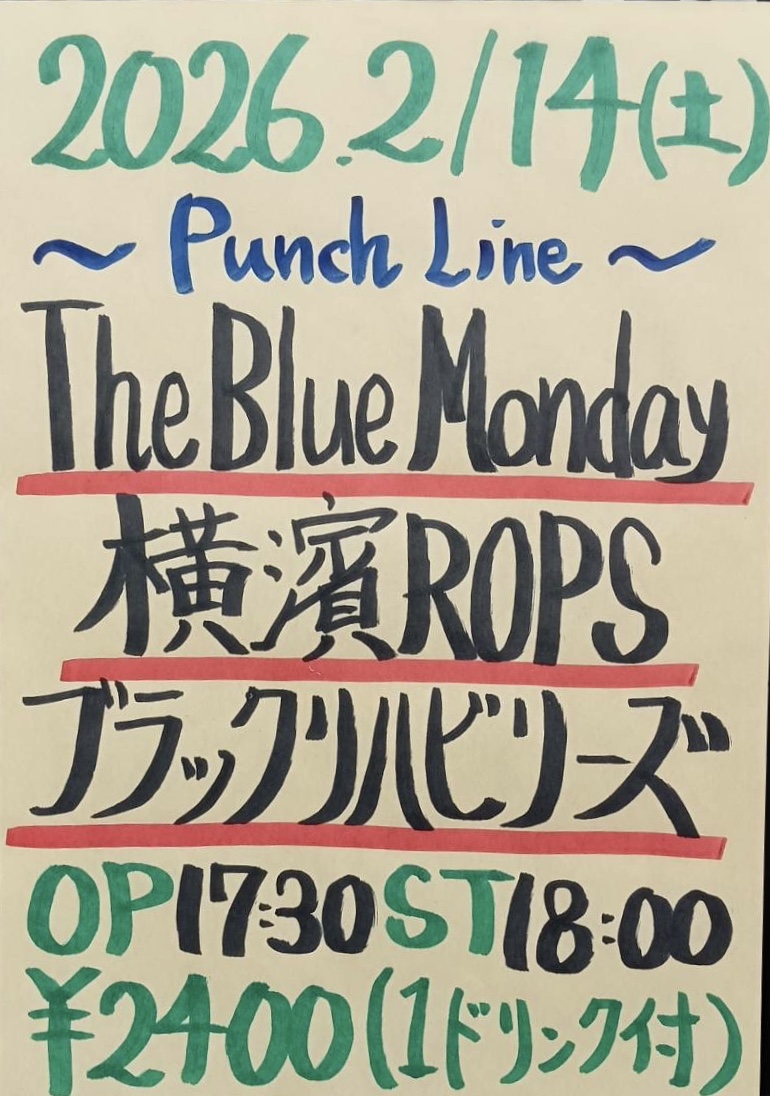 2026.2/14(土)
~ Punch Line ~
The Blue Monday
横濱ROPS
ブラックリハビリーズ
OP17:30 ST18:00
¥2400(1ドリンク付)